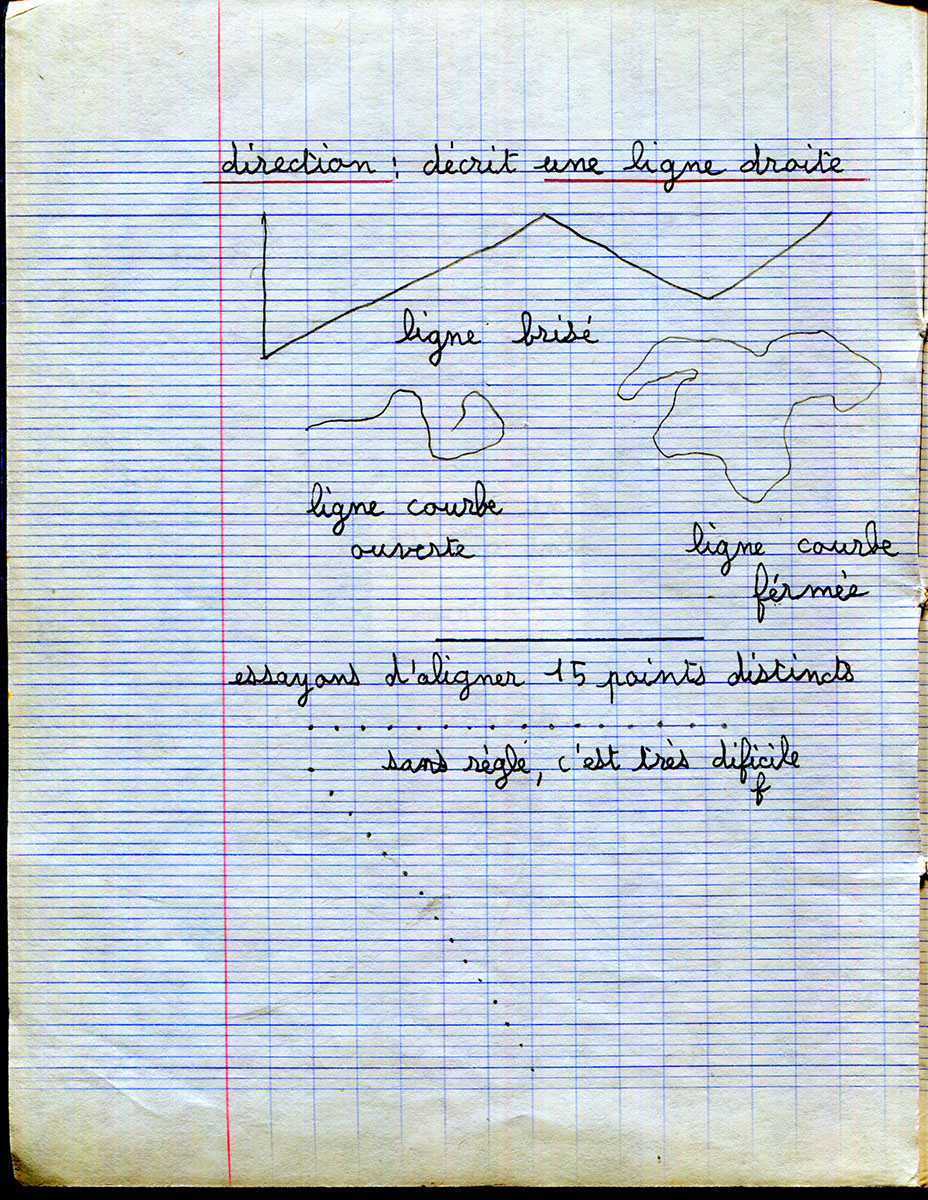 direction : décrit une ligne droite
ligne brisé
ligne courbe
ouverte
ligne courbe
férmée
essayons d'aligner 15 points distincts
sans réglé, c'est très dificile
f